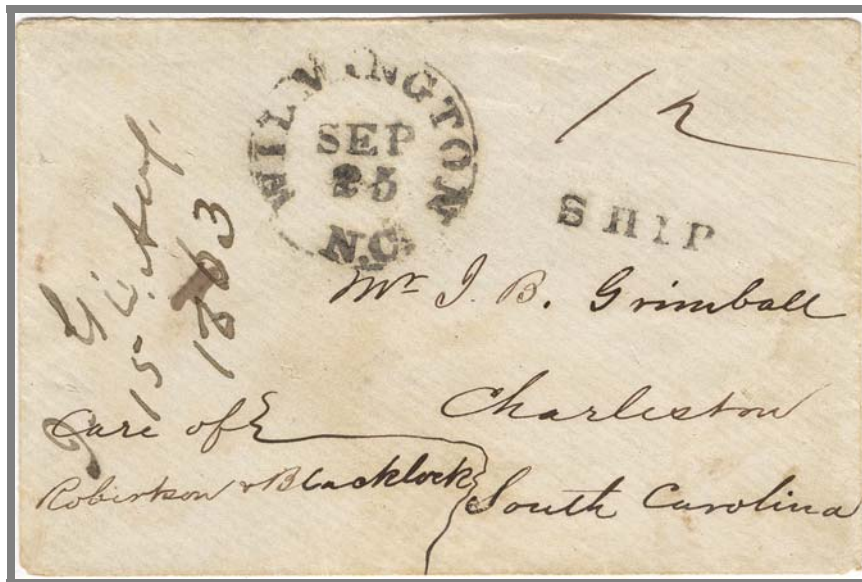 WILMINGTON
SEP
25
N.C.
12
SHIP
15
1863
Mr J. B. Grimball
Charleston
South Carolina
Care of
Robertson & Blacklock